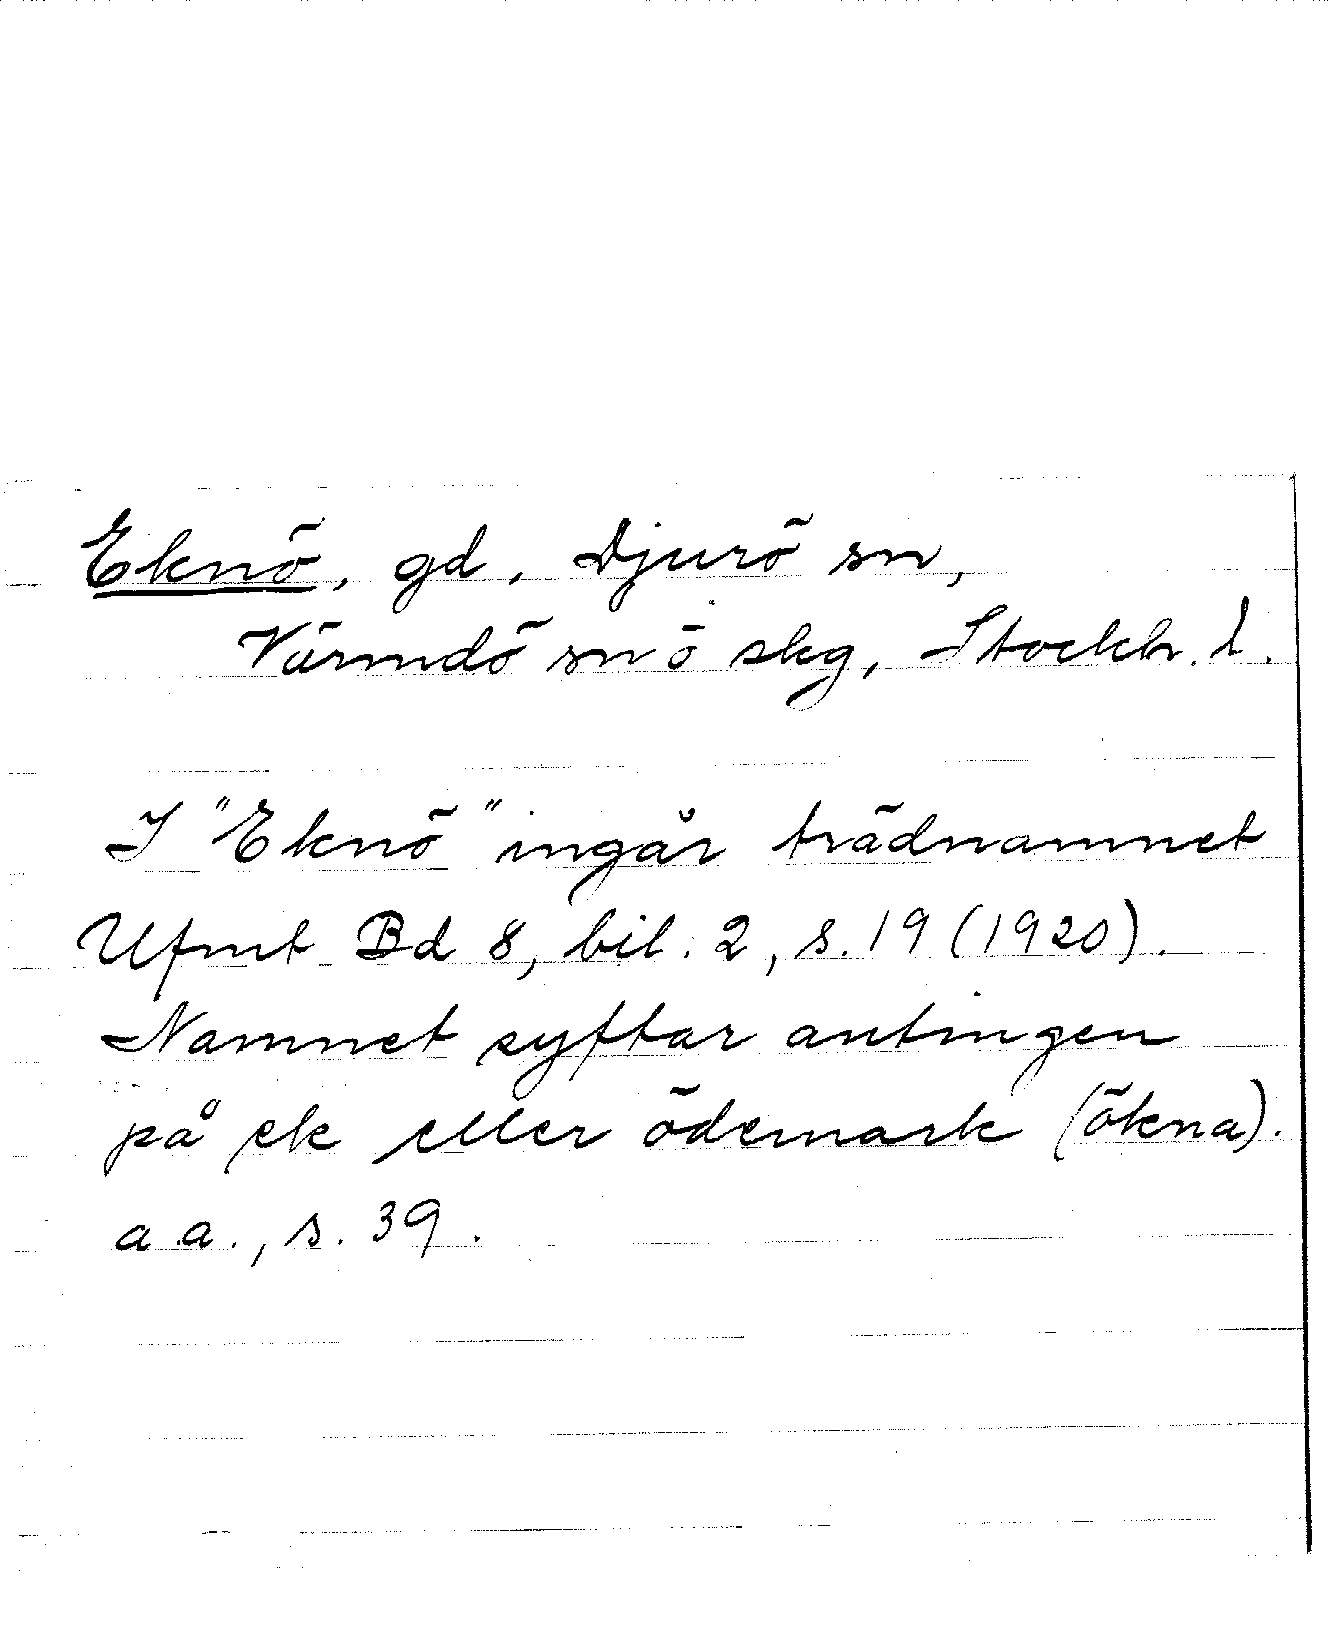 Eknö, gd, Djurö sn,
Värmdö sn o skg, Stockh. l.
I "Eknö" ingår trädnamnet
Ufmt Bd 8, bil. 2, s. 19 (1920).
Namnet syftar antingen
på ek eller ödemark (ökna).
a.a., s. 39.